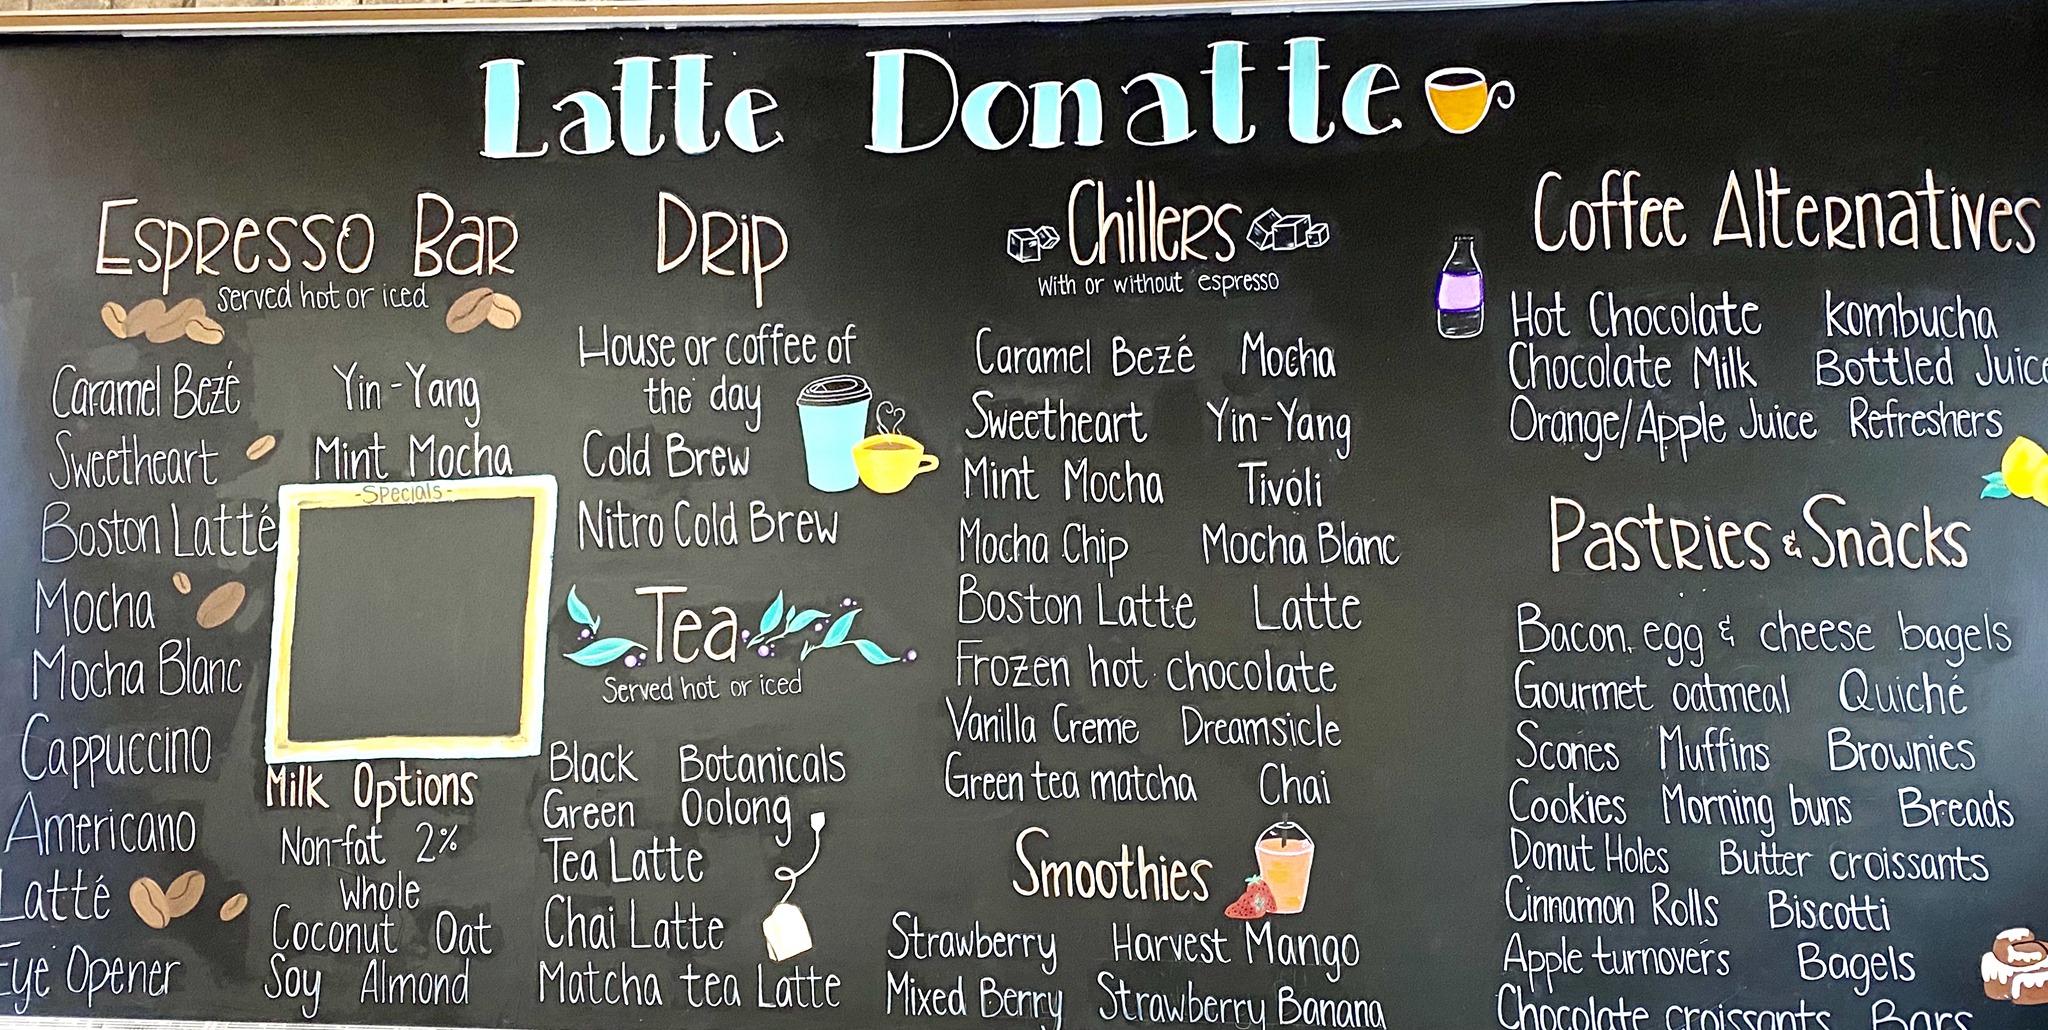 Latte Donatte
Espresso Bar
served hot or iced
Caramel Bezé
Sweetheart
Boston Latté
Mocha
Mocha Blanc
Cappuccino
Americano
Latté
Eye Opener
Yin-Yang
Mint Mocha
-Specials-
Milk Options
Non-fat 2%
Whole
Coconut Oat
Soy Almond
Drip
House or coffee of
the day
Cold Brew
Nitro Cold Brew
Tea
Served hot or iced
Black Botanicals
Green Oolong
Tea Latte
Chai Latte
Matcha tea Latte
Chillers
With or without espresso
Caramel Bezé Mocha
Sweetheart Yin-Yang
Mint Mocha Tivoli
Mocha Chip Mocha Blanc
Boston Latte Latte
Frozen hot chocolate
Vanilla Creme Dreamsicle
Green tea matcha Chai
Smoothies
Strawberry Harvest Mango
Mixed Berry Strawberry Banana
Coffee Alternatives
Hot Chocolate Kombucha
Chocolate Milk Bottled Juice
Orange/Apple Juice Refreshers
Pastries & Snacks
Bacon, egg & cheese bagels
Gourmet oatmeal Quiché
Scones Muffins Brownies
Cookies Morning buns Breads
Donut Holes Butter croissants
Cinnamon Rolls Biscotti
Apple turnovers Bagels
Chocolate croissants Bars